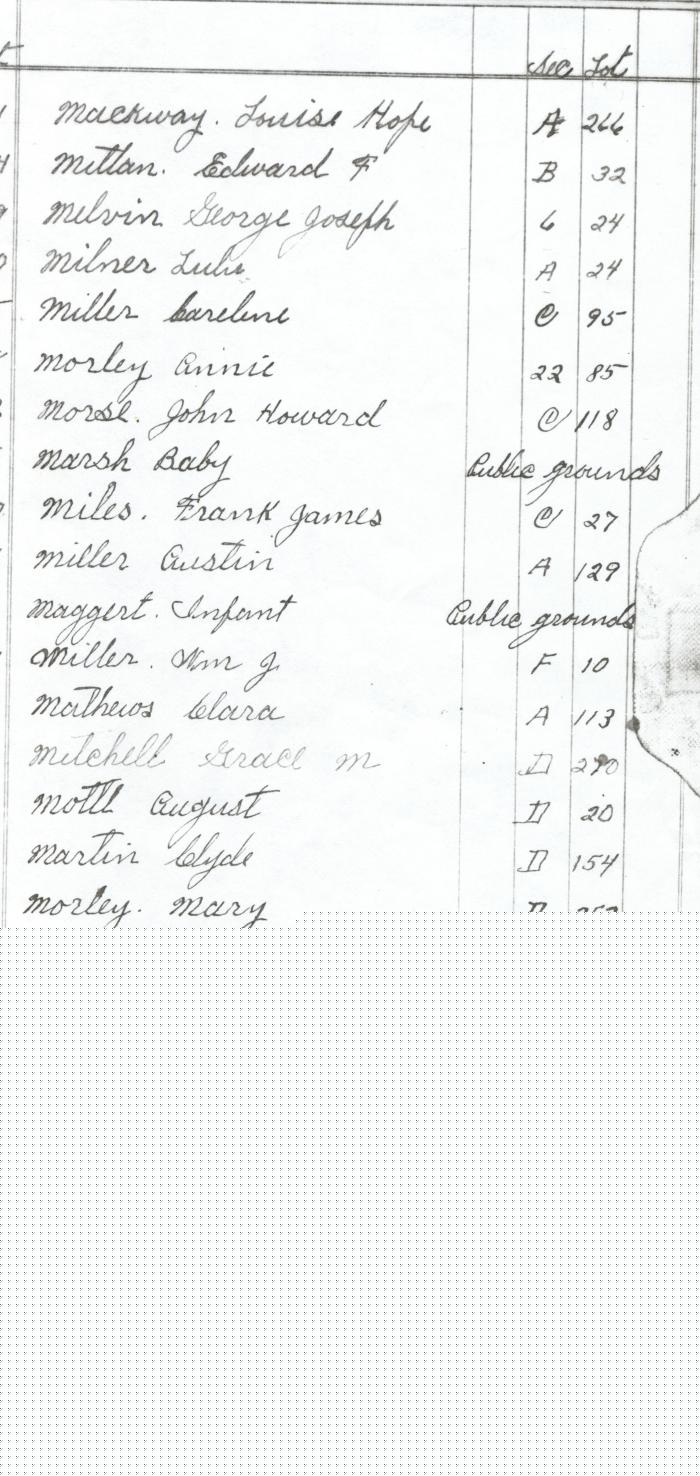 Sec Lot
Mackway. Louise Hope A 266
Mittan. Edward F B 32
Melvin George Joseph 6 24
Milner Lulu A 24
Miller Careline C 95
Morley Annie 22 85
Morse. John Howard C 118
Marsh Baby Public grounds
Miles. Frank James C 27
Miller Austin A 129
Maggert. Infant Public grounds
Miller. Wm J. F 10
Mathews Clara A 113
Mitchell Grace M D
Mottl August D 20
Martin Clyde D 154
Morley. Mary